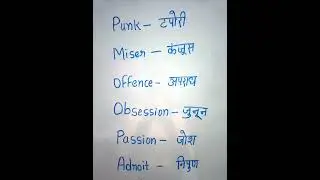 Punk – टपोरी
Miser – कंजूस
Offence – अपराध
Obsession – जुनून
Passion – जोश
Adroit – निपुण